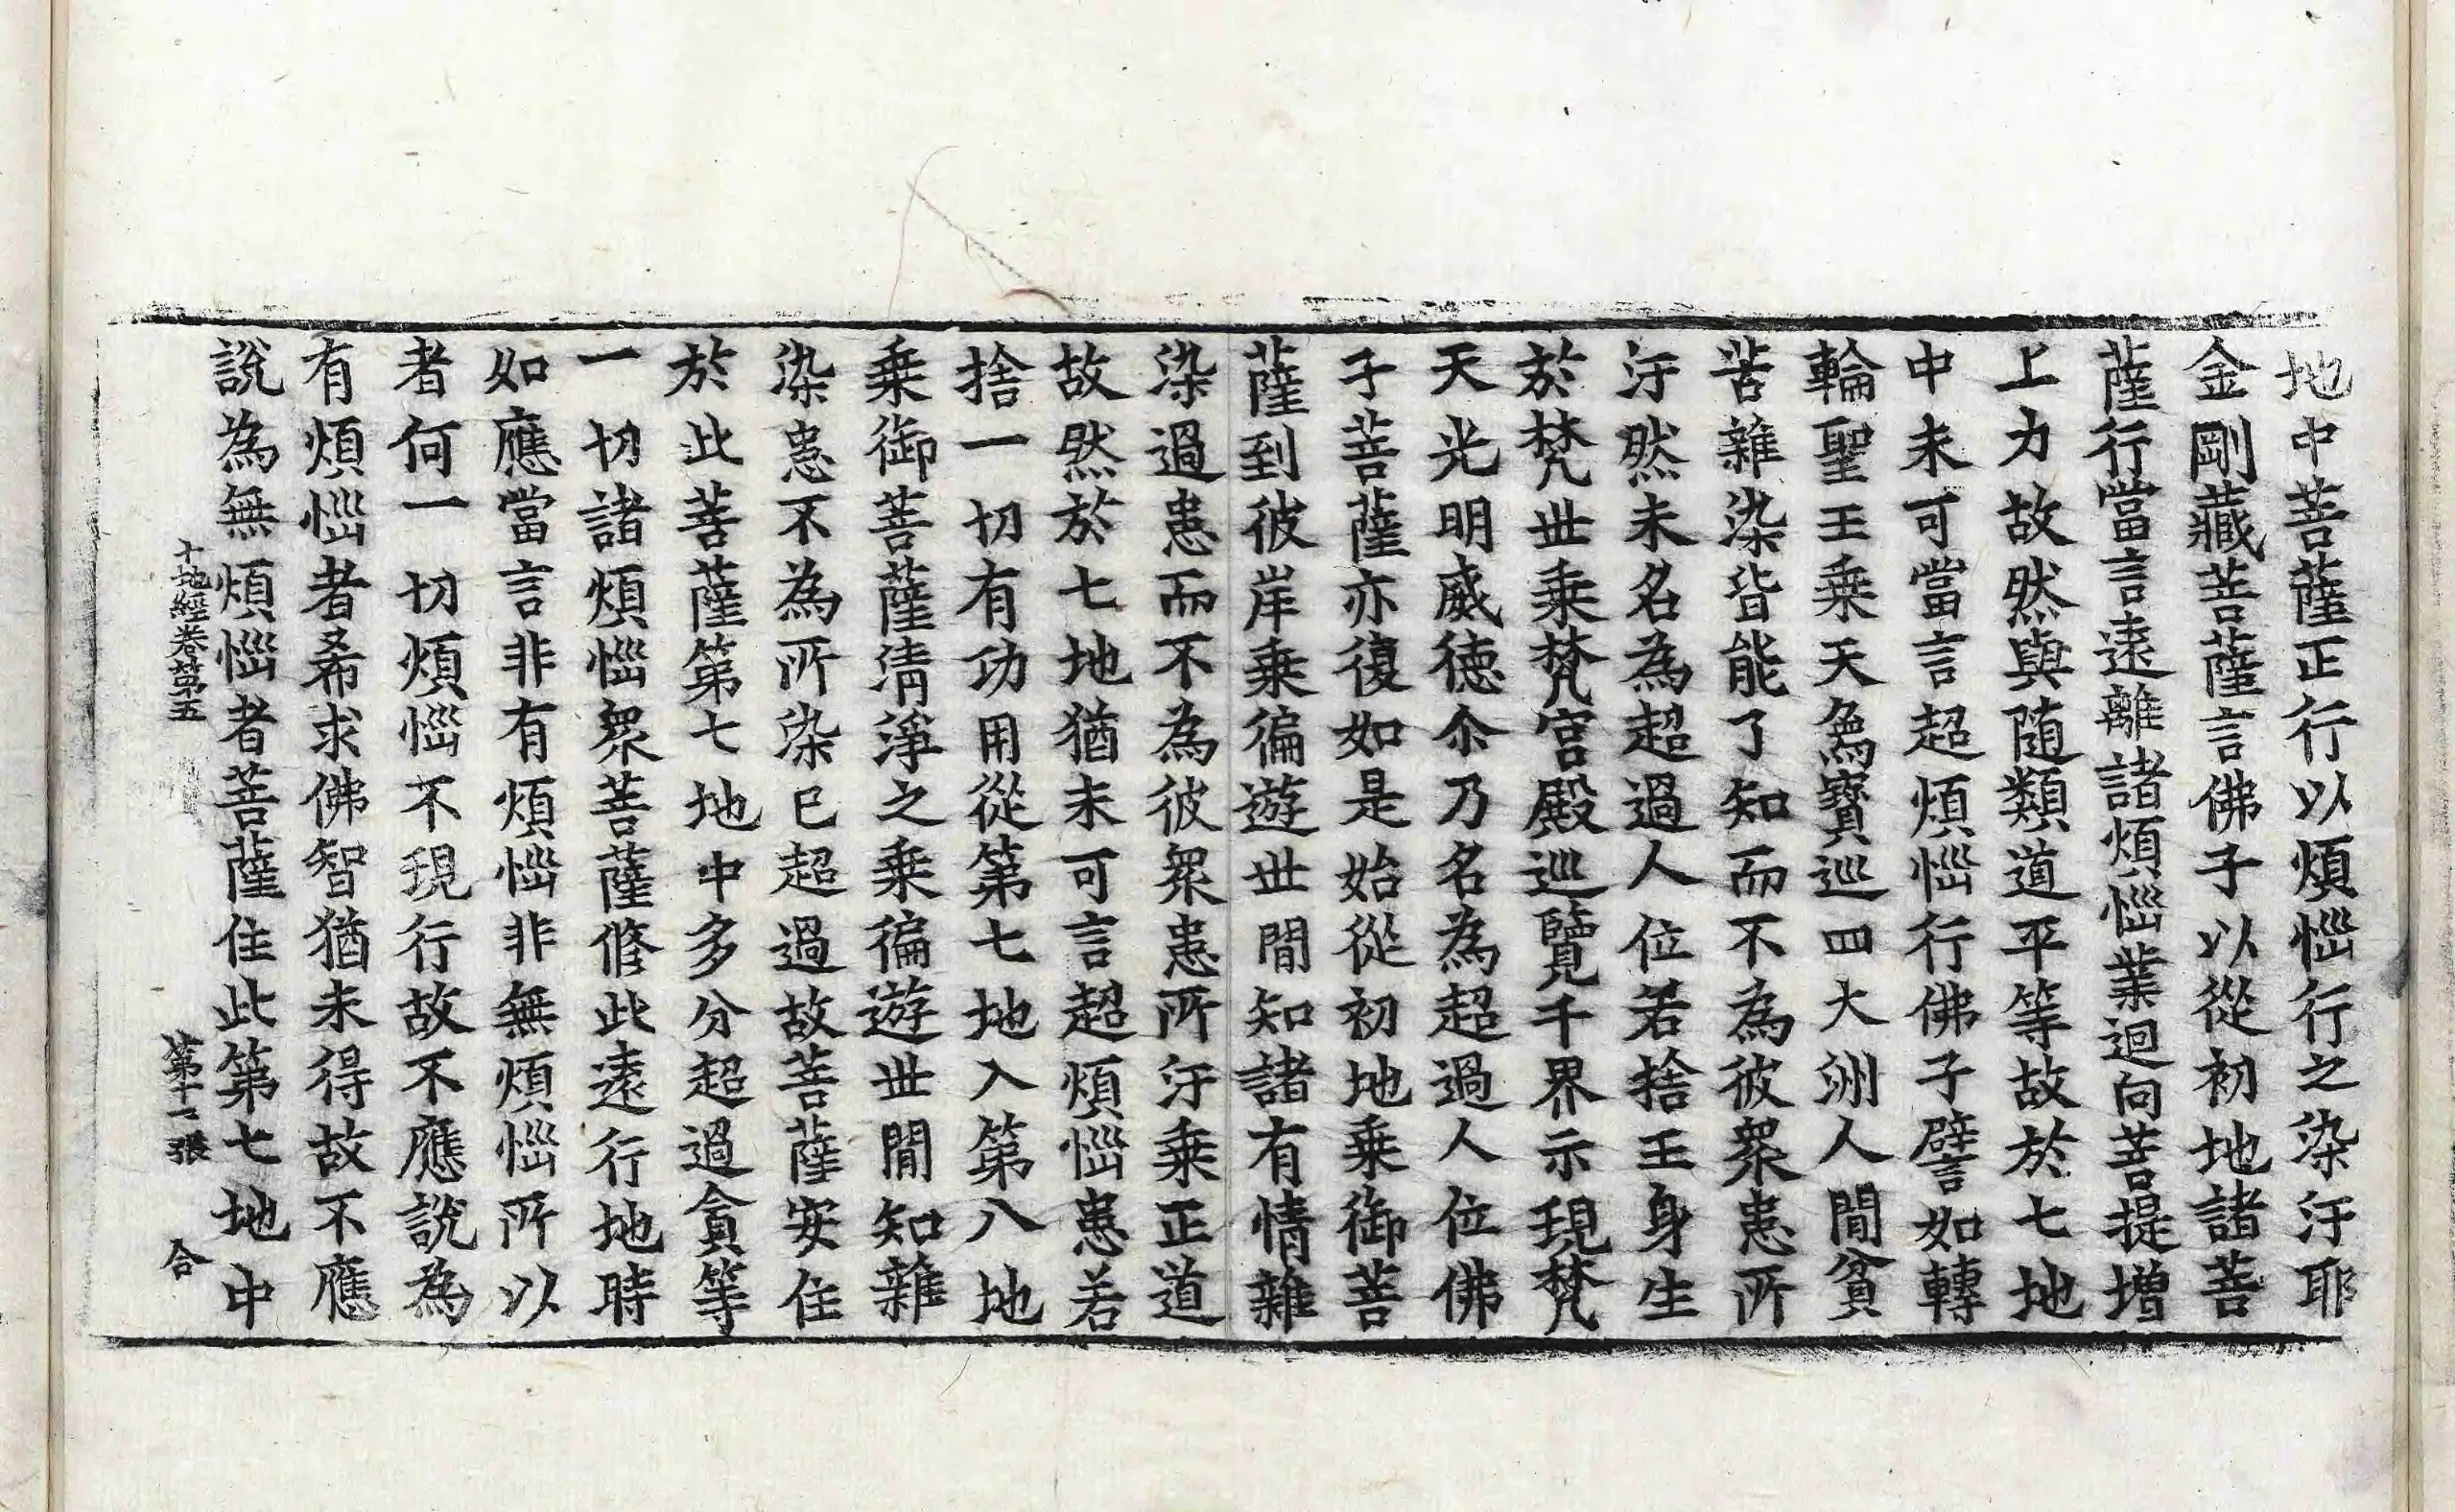 地中菩薩正行以煩惱行之染汙耶
金剛藏菩薩言佛子以從初地諸菩
薩行當言遠離諸煩惱業迴向菩提增
上力故然與随類道平等故於七地
中未可當言超煩惱行佛子譬如轉
輪聖王乗天象寶巡四大洲人間貧
苦雜染皆能了知而不為彼衆患所
汙然未名為超過人位若捨王身生
於梵世乗梵宮殿巡覽千界示現梵
天光明威德尒乃名為超過人位佛
子菩薩亦復如是始從初地乗御菩
薩到彼岸乗徧遊世間知諸有情雜
染過患而不為彼衆患所汙乗正道
故然於七地猶未可言超煩惱患若
捨一切有功用從第七地入第八地
乗御菩薩清淨之乗徧遊世間知雜
染患不為所染已超過故菩薩安住
於此菩薩第七地中多分超過貪等
一切諸煩惱衆菩薩修此遠行地時
如應當言非有煩惱非無煩惱所以
者何一切煩惱不現行故不應說為
有煩惱者希求佛智猶未得故不應
說為無煩惱者菩薩住此第七地中
十地經卷第五 第十一張 合